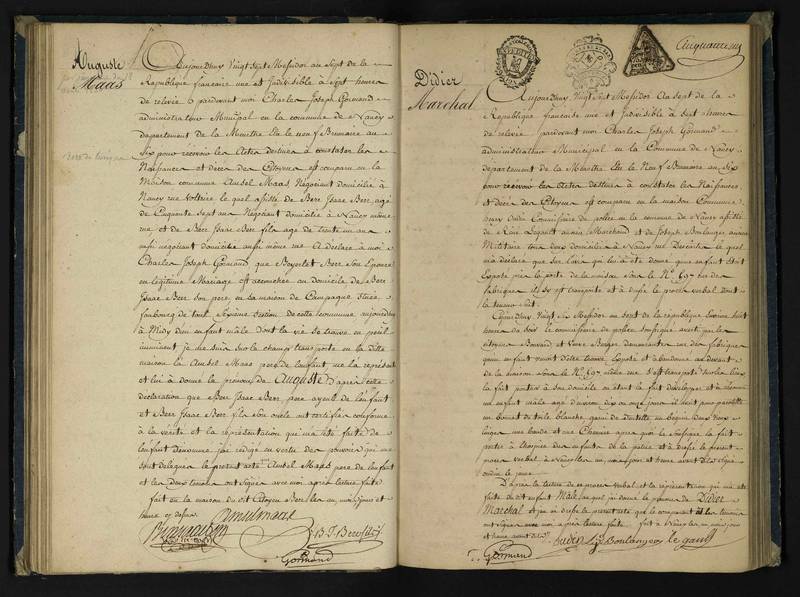 Auguste
Maas
Aujourdhuy Vingt Sept Messidor an Sept de la
Republique francaise une et Indivisible à Sept heures
de relevée pardevant moi Charles Joseph Gormand
administrateur Municipal en la commune de Nancy
departement de la Meurthe Elu le neuf Brumaire an
Six pour recevoir les Actes destinés à constater les
Naissances et deces des Citoyens est comparu en la
Maison commune Anshel Maas Négociant domicilié à
Nancy rue Voltaire le quel assisté de Berr Isaac Berr agé
de Cinquante Sept ans Négociant domicilié à Nancy même
rue et de Berr Isaac Berr fils agé de trente un ans
aussi négociant domicilié aussi même rue A declaré à moi
Charles Joseph Gormand que Beyerlet Berr Son Epouse
en légitime Mariage est accouchée au domicile de Berr
Isaac Berr son pere en Sa maison de Campagne Située
faubourg de toul Section de cette commune aujourdhuy
à Midy d'un enfant mâle dont la vie Se trouve en péril
je me suis Sur le champ transporté en la ditte
maison là Anshel Maas pere de l'enfant me l'a représenté
et lui a donné le prénom de Auguste d'après cette
déclaration que Berr Isaac Berr pere ayeul de l'enfant
et Berr Isaac Berr fils Son oncle ont certifiée conforme
à la vérité et la représentation qui m'a été faite de
l'enfant denommé j'ai rédigé en vertu des pouvoirs qui me
sont delegués le présent acte Anshel Maas pere de l'enfant
et les deux témoins ont signé avec moi après lecture faite
fait en la maison du dit Citoyen Berr les an, mois, jour et
heure cy dessus
B I Berr fils
Gormand
Didier
Marchal
Aujourdhuy Vingt Sept Messidor An Sept de la
Republique francaise une et Indivisible à Sept heures
de relevée pardevant moi Charles Joseph Gormand
administrateur Municipal en la Commune de Nancy
departement de la Meurthe Elu le Neuf Brumaire an Six
pour recevoir les Actes destinés à constater les Naissances
et décés des Citoyens est comparu en la maison Commune
Commissaire de police en la commune de Nancy assisté
de René Legault ancien Marchand et de Joseph Boulanger ancien
Militaire tous deux domiciliés à Nancy le quel
m'a déclaré que Sur l'avis qui lui a été donné qu'un enfant était
Exposé près la porte de la maison Sous le N.º 597 rue des
fabriques il s'y est transporté et à dressé le procès verbal dont
la teneur suit
Cejourdhuy Vingt Six Messidor an Sept de la république Environ huit
heures du soir le commissaire de police soussigné averti par les
citoyens
qu'un enfant venait d'être trouvé Exposé et abandonné au devant
de la maison Sous le N.º 597 même rue S'est transporté Sur les lieux
l'a fait porter à Son domicile où étant l'a fait développer et à reconnu
un enfant mâle agé d'environ dix ou onze jours il avait pour
un bonnet de toile blanche garni de dentelle un beguin deux
langes une bande et une Chemise après quoi le soussigné l'a fait
porter à l'hospice des enfants de la patrie et à dressé le présent
procès verbal à Nancy les an, mois, jour et heure avant dits Signé
D'après la lecture de ce procès verbal et la représentation qui m'a été
faite du dit enfant Mâle au quel j'ai donné le prénom de Didier
Marchal et j'ai dressé le présent acte que le comparant et les témoins
ont signé avec moi après lecture faite fait à Nancy les an, mois, jour
et heure avant dits
Oudin J Boulanger le gault
Gormand